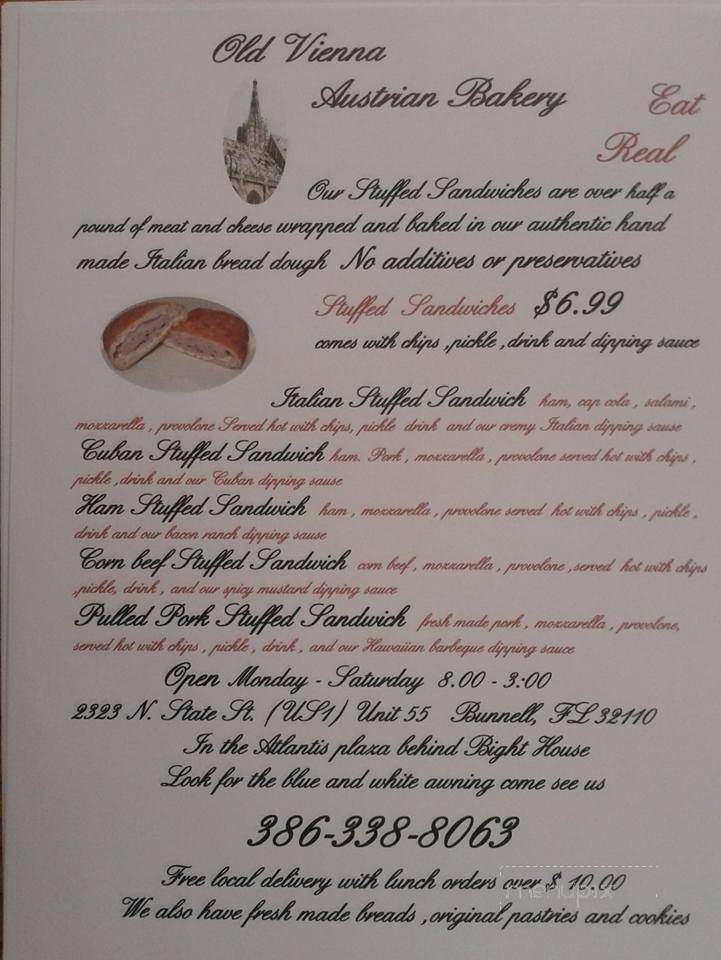 Old Vienna
Austrian Bakery
Eat
Real
Our Stuffed Sandwiches are over half a
pound of meat and cheese wrapped and baked in our authentic hand
made Italian bread dough No additives or preservatives
Stuffed Sandwiches $6.99
comes with chips ,pickle ,drink and dipping sauce
Italian Stuffed Sandwich ham, cap cola , salami ,
mozzarella , provolone Served hot with chips, pickle drink and our cremy Italian dipping sause
Cuban Stuffed Sandwich ham. Pork , mozzarella , provolone served hot with chips ,
pickle ,drink and our Cuban dipping sause
Ham Stuffed Sandwich ham , mozzarella , provolone served hot with chips , pickle ,
drink and our bacon ranch dipping sause
Corn beef Stuffed Sandwich corn beef , mozzarella , provolone ,served hot with chips
,pickle, drink , and our spicy mustard dipping sauce
Pulled Pork Stuffed Sandwich fresh made pork , mozzarella , provolone,
served hot with chips , pickle , drink , and our Hawaiian barbeque dipping sauce
Open Monday - Saturday 8.00 - 3:00
2323 N. State St. (US1) Unit 55 Bunnell, FL 32110
In the Atlantis plaza behind Bight House
Look for the blue and white awning come see us
386-338-8063
Free local delivery with lunch orders over $ 10.00
menupix
We also have fresh made breads ,original pastries and cookies